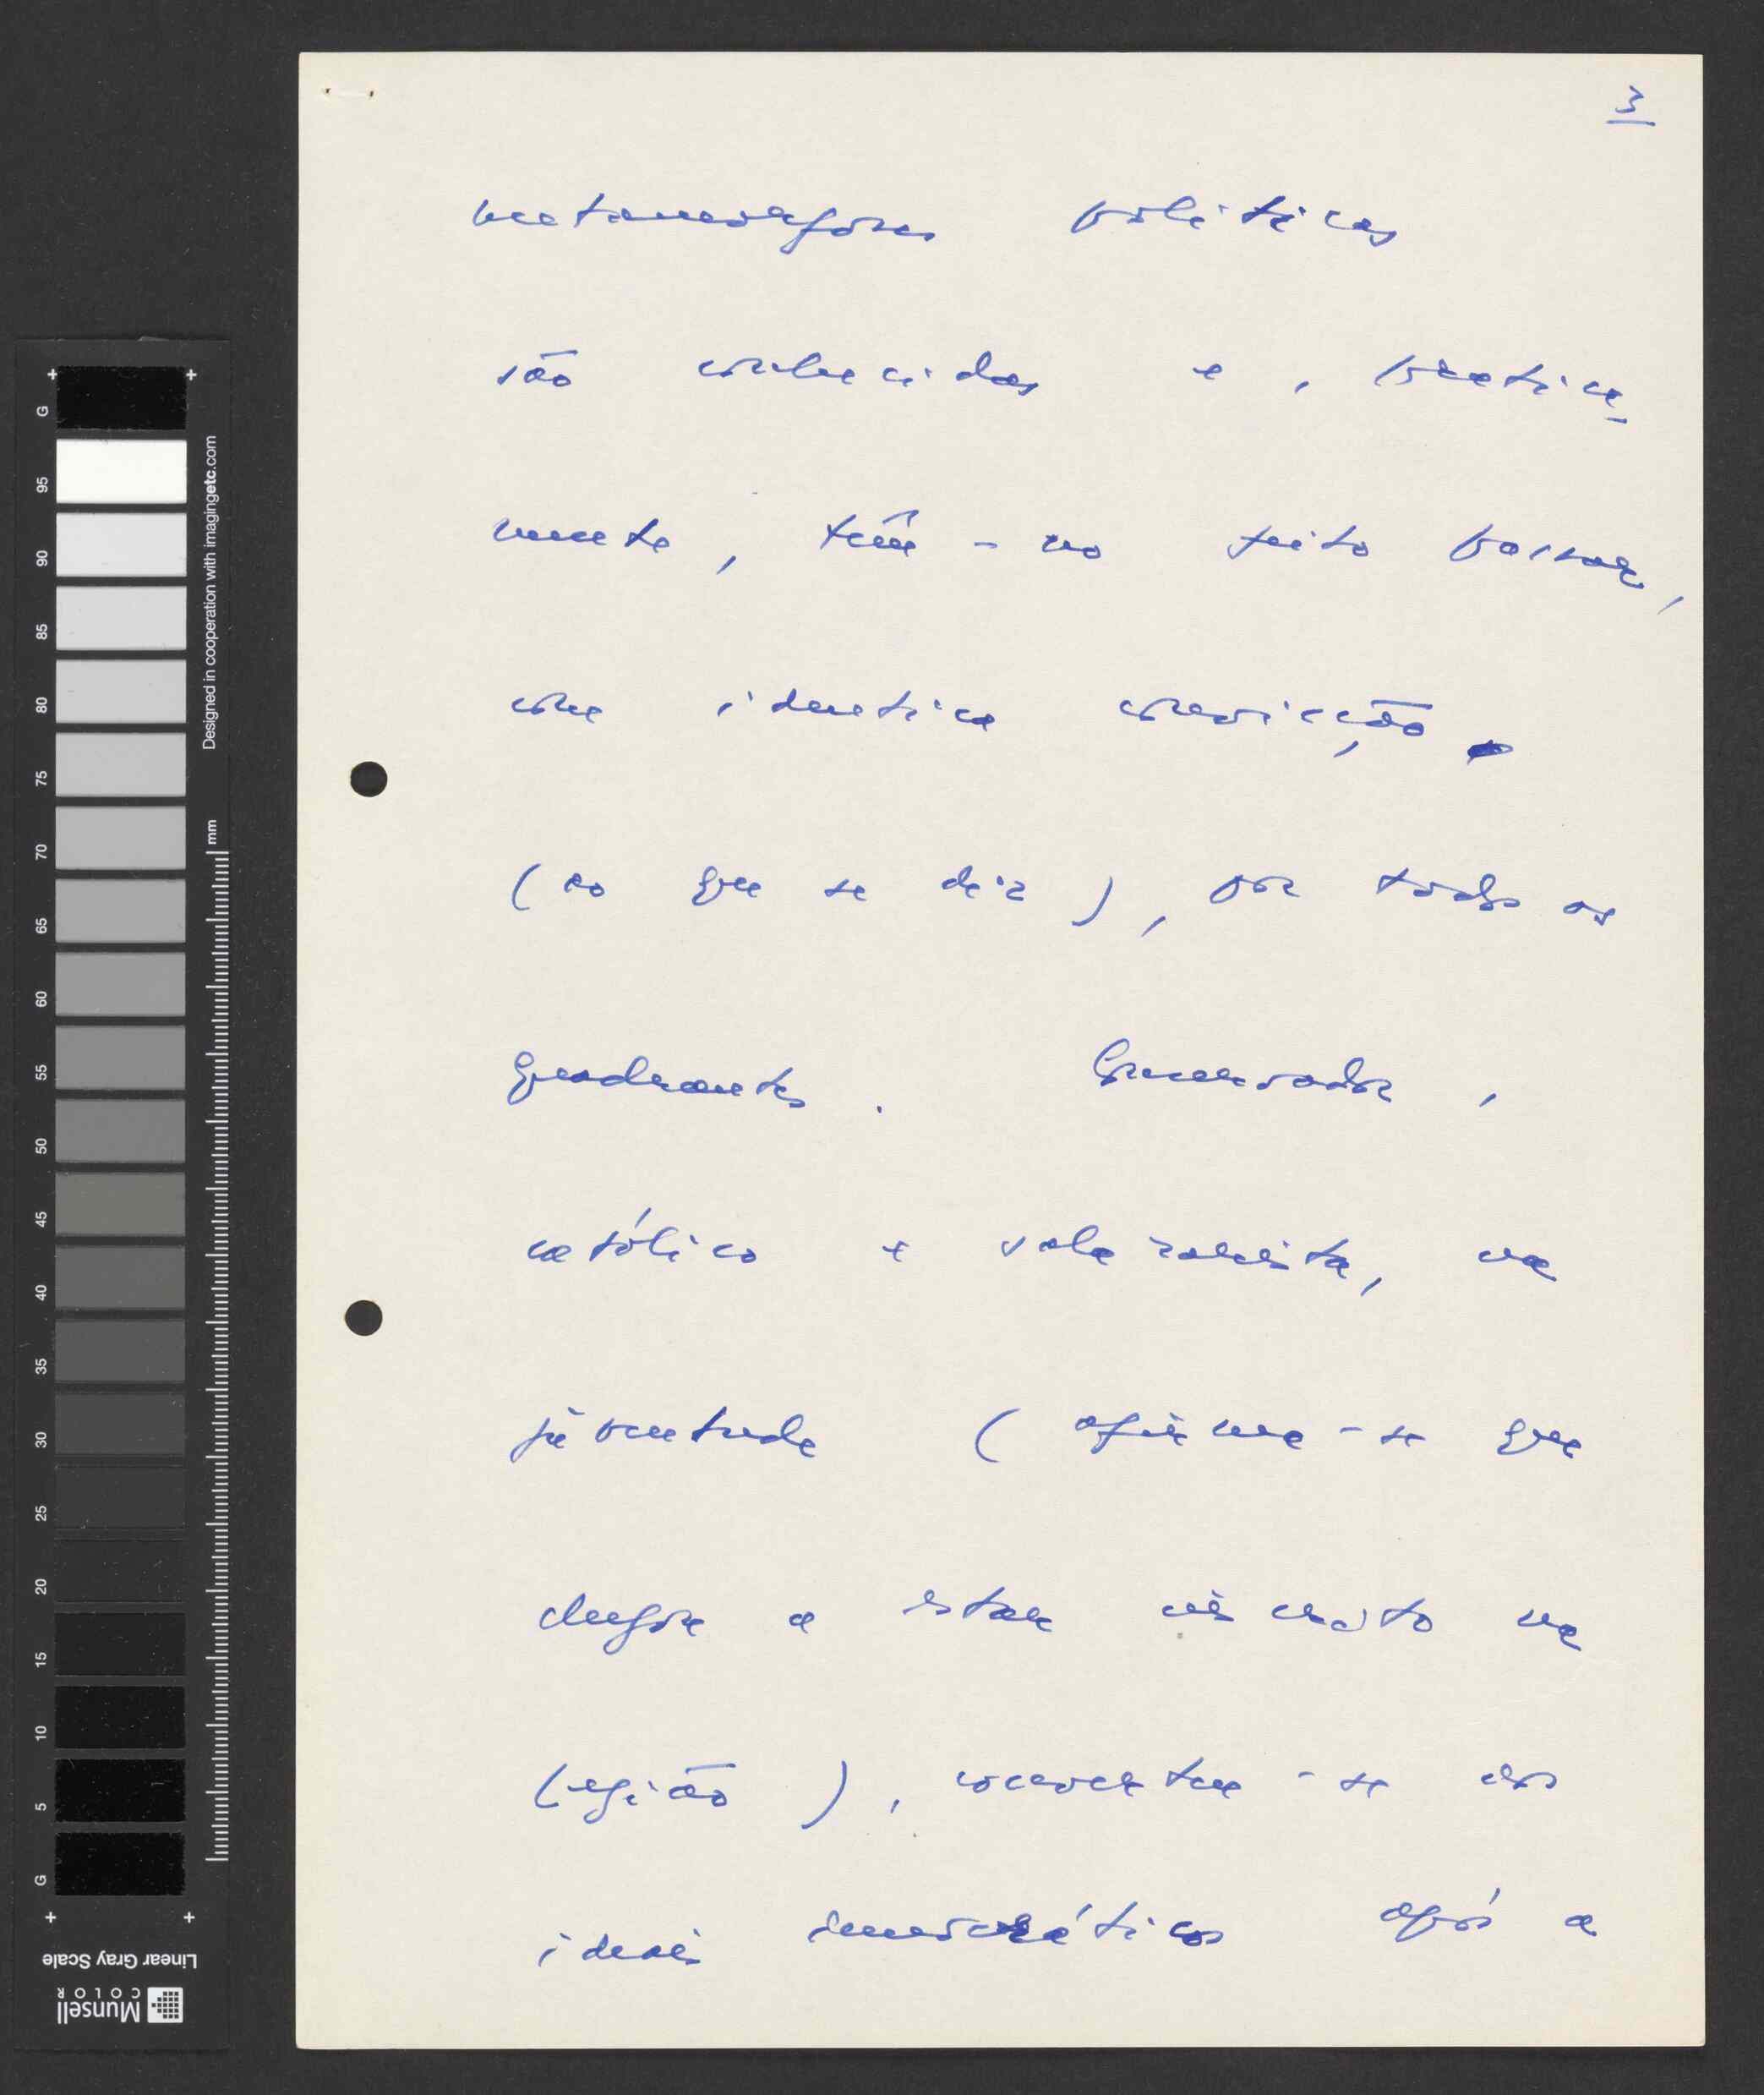 3
metamorfoses políticas
são conhecidas e, pratica-
mente, têm-no feito passar,
com identica convicção
(ao que se diz), por todos os
quadrantes. Conservador,
católico e salazarista, na
juventude (afirma-se que
chegou a estar inscrito na
Legião), converteu-se aos
ideais democráticos após a
G 95 90 85 80 75 70 65 60 55 50 45 40 35 30 25 20 15 10 5 G
Designed in cooperation with imagingetc.com
mm
Linear Gray Scale
Munsell
COLOR